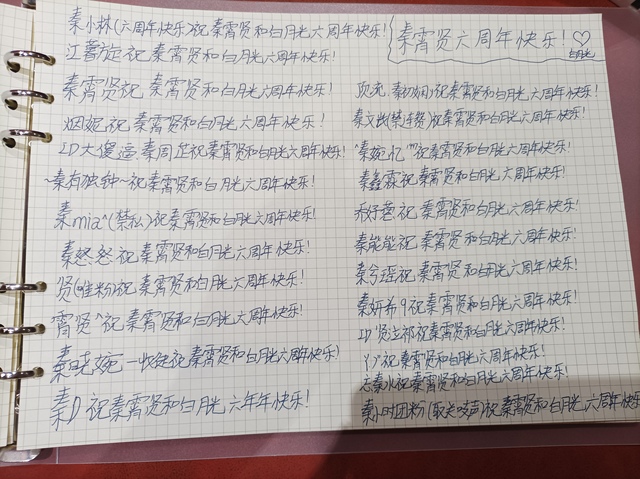 秦小林(六周年快乐)祝秦霄贤和白月光六周年快乐!
江薯旋祝秦霄贤和白月光六周年快乐!
秦霄贤祝秦霄贤和白月光六周年快乐!
烟妮祝秦霄贤和白月光六周年快乐!
ID大傻逼秦周正祝秦霄贤和白月光六周年快乐!
~秦有独钟~祝秦霄贤和白月光六周年快乐!
秦mia^(禁私)祝秦霄贤和白月光六周年快乐!
秦怒怒祝秦霄贤和白月光六周年快乐!
贤(唯粉)祝秦霄贤和白月光六周年快乐!
霄贤^祝秦霄贤和白月光六周年快乐!
秦晚婉一收徒祝秦霄贤和白月光六周年快乐!
秦D祝秦霄贤和白月光六年年快乐!
秦霄贤六周年快乐!♡
白月光
祝秦霄贤和白月光六周年快乐!
祝秦霄贤和白月光六周年快乐!
秦婉忆祝秦霄贤和白月光六周年快乐!
秦鑫霖祝秦霄贤和白月光六周年快乐!
祝秦霄贤和白月光六周年快乐!
秦能能祝秦霄贤和白月光六周年快乐!
秦兮瑶祝秦霄贤和白月光六周年快乐!
秦妍希9祝秦霄贤和白月光六周年快乐!
ID 祝秦霄贤和白月光六周年快乐!
丫丫祝秦霄贤和白月光六周年快乐!
祝秦霄贤和白月光六周年快乐!
秦小时团粉(取关吱声)祝秦霄贤和白月光六周年快乐